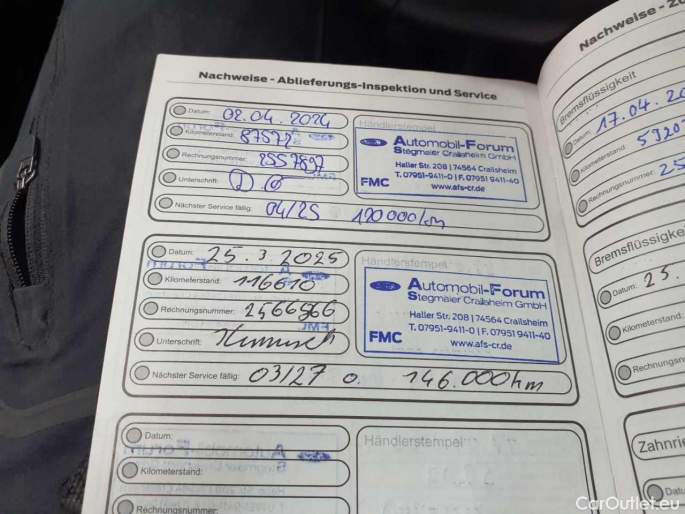 Nachweise - Ablieferungs-Inspektion und Service
Datum: 02.04.2024
Kilometerstand: 87572
Rechnungsnummer: 2557897
Unterschrift:
Nächster Service fällig: 04/25 120000km
Händlerstempel
Ford
Automobil-Forum
Stegmaier Crailsheim GmbH
Haller Str. 208 | 74564 Crailsheim
T. 07951-9411-0 | F. 07951 9411-40
www.afs-cr.de
FMC
Datum: 25.3.2025
Kilometerstand: 116610
Rechnungsnummer: 2566566
Unterschrift:
Nächster Service fällig: 03/27 o. 146.000km
Händlerstempel
Ford
Automobil-Forum
Stegmaier Crailsheim GmbH
Haller Str. 208 | 74564 Crailsheim
T. 07951-9411-0 | F. 07951 9411-40
www.afs-cr.de
FMC
Datum:
Kilometerstand:
Rechnungsnummer:
Händlerstempel
Nachweise - Zu
Bremsflüssigkeit
Datum: 17.04.20
Kilometerstand: 5920
Rechnungsnummer: 25
Bremsflüssigke
Datum: 25.
Kilometerstand:
Rechnungsn
Zahnrie
Datu
CarOutlet.eu